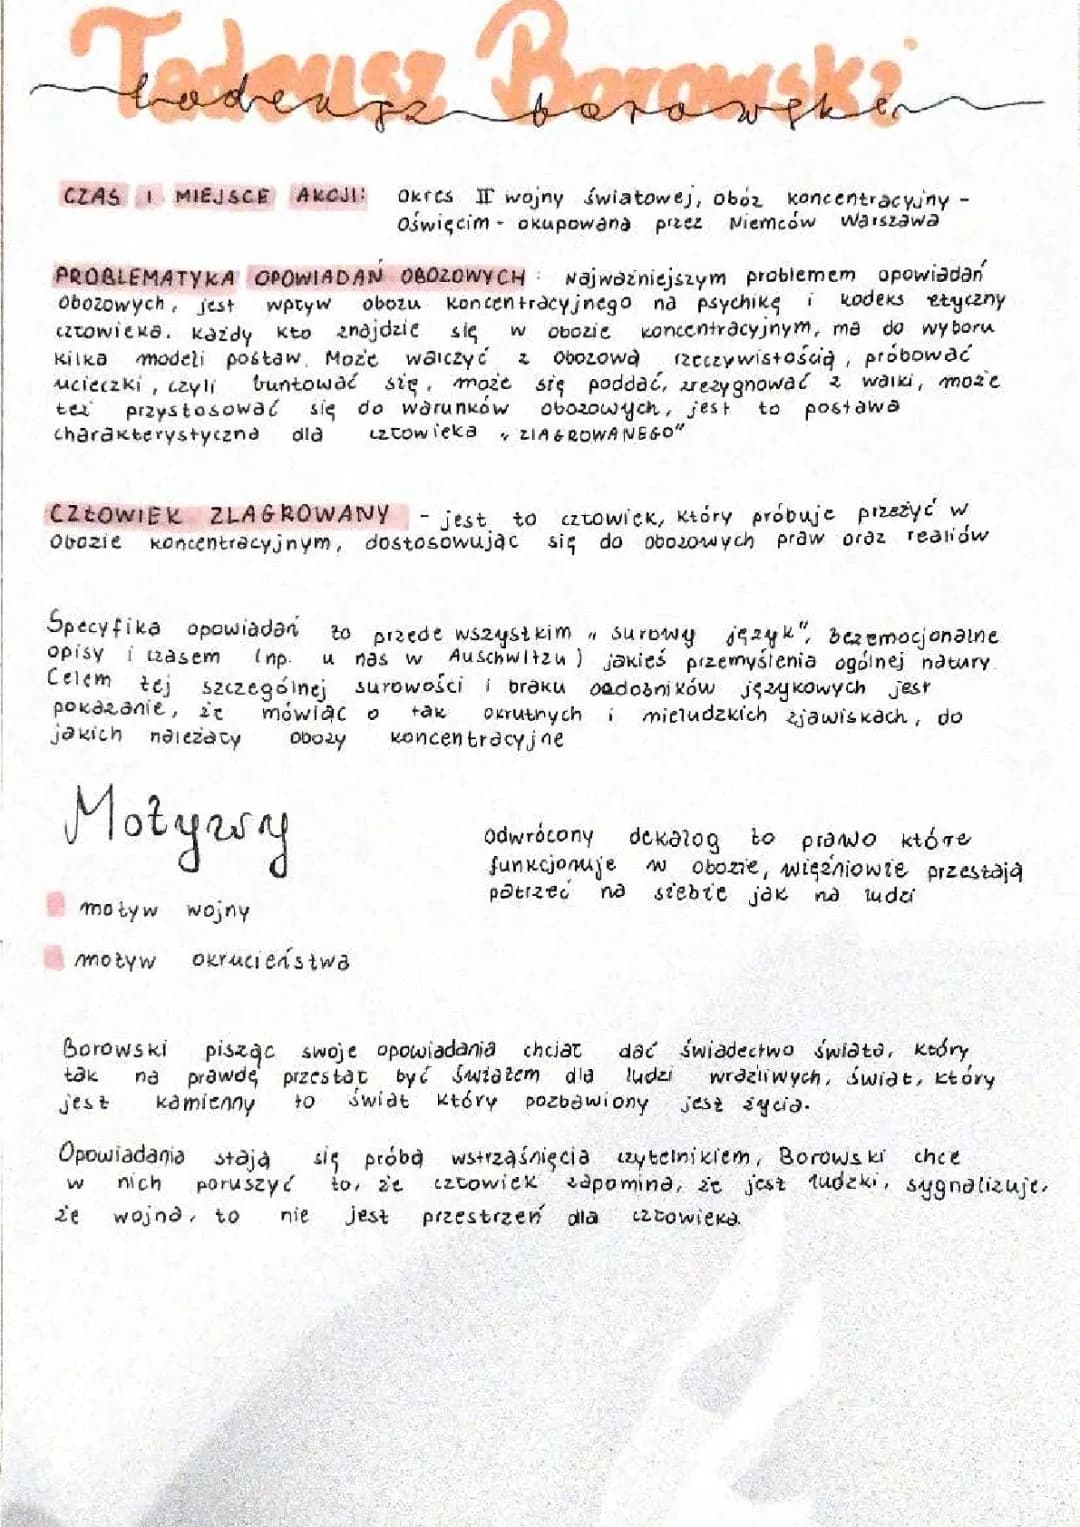 Tadeusz Borowski
tadeusz borowski
CZAS I MIEJSCE AKCJI: Okres II wojny światowej, obóz koncentracyjny -
Oświęcim - okupowana przez Niemców Warszawa
PROBLEMATYKA OPOWIADAŃ OBOZOWYCH: Najważniejszym problemem opowiadań
obozowych, jest wpływ obozu koncentracyjnego na psychikę i kodeks etyczny
człowieka. Każdy kto znajdzie się w obozie koncentracyjnym, ma do wyboru
kilka modeli postaw. Może walczyć z obozową rzeczywistością, próbować
ucieczki, czyli buntować się, może się poddać, zrezygnować z walki, może
też przystosować się do warunków obozowych, jest to postawa
charakterystyczna dla człowieka „ZLAGROWANEGO"
CZŁOWIEK ZLAGROWANY - jest to człowiek, który próbuje przeżyć w
obozie koncentracyjnym, dostosowując się do obozowych praw oraz realiów
Specyfika opowiadań to przede wszystkim „surowy język", bezemocjonalne
opisy i czasem (np. u nas w Auschwitzu) jakieś przemyślenia ogólnej natury.
Celem tej szczególnej surowości i braku ozdobników językowych jest
pokazanie, że mówiąc o tak okrutnych i nieludzkich zjawiskach, do
jakich należały obozy koncentracyjne
Motywy
odwrócony dekalog to prawo które
funkcjonuje w obozie, więźniowie przestają
patrzeć na siebie jak na ludzi
motyw wojny
motyw okrucieństwa
Borowski pisząc swoje opowiadania chciał dać świadectwo świata, który
tak na prawdę przestał być światem dla ludzi wrażliwych, świat, który
jest kamienny to świat który pozbawiony jest życia.
Opowiadania stają się próbą wstrząśnięcia czytelnikiem, Borowski chce
w nich poruszyć to, że człowiek zapomina, że jest ludzki, sygnalizuje,
że wojna, to nie jest przestrzeń dla człowieka.